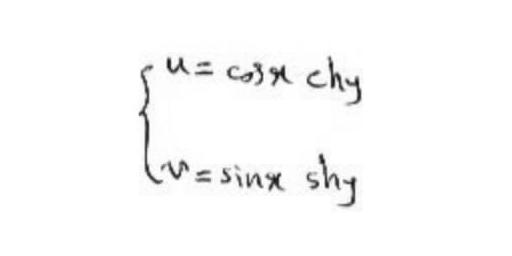 u = cosx chy
v = sinx shy